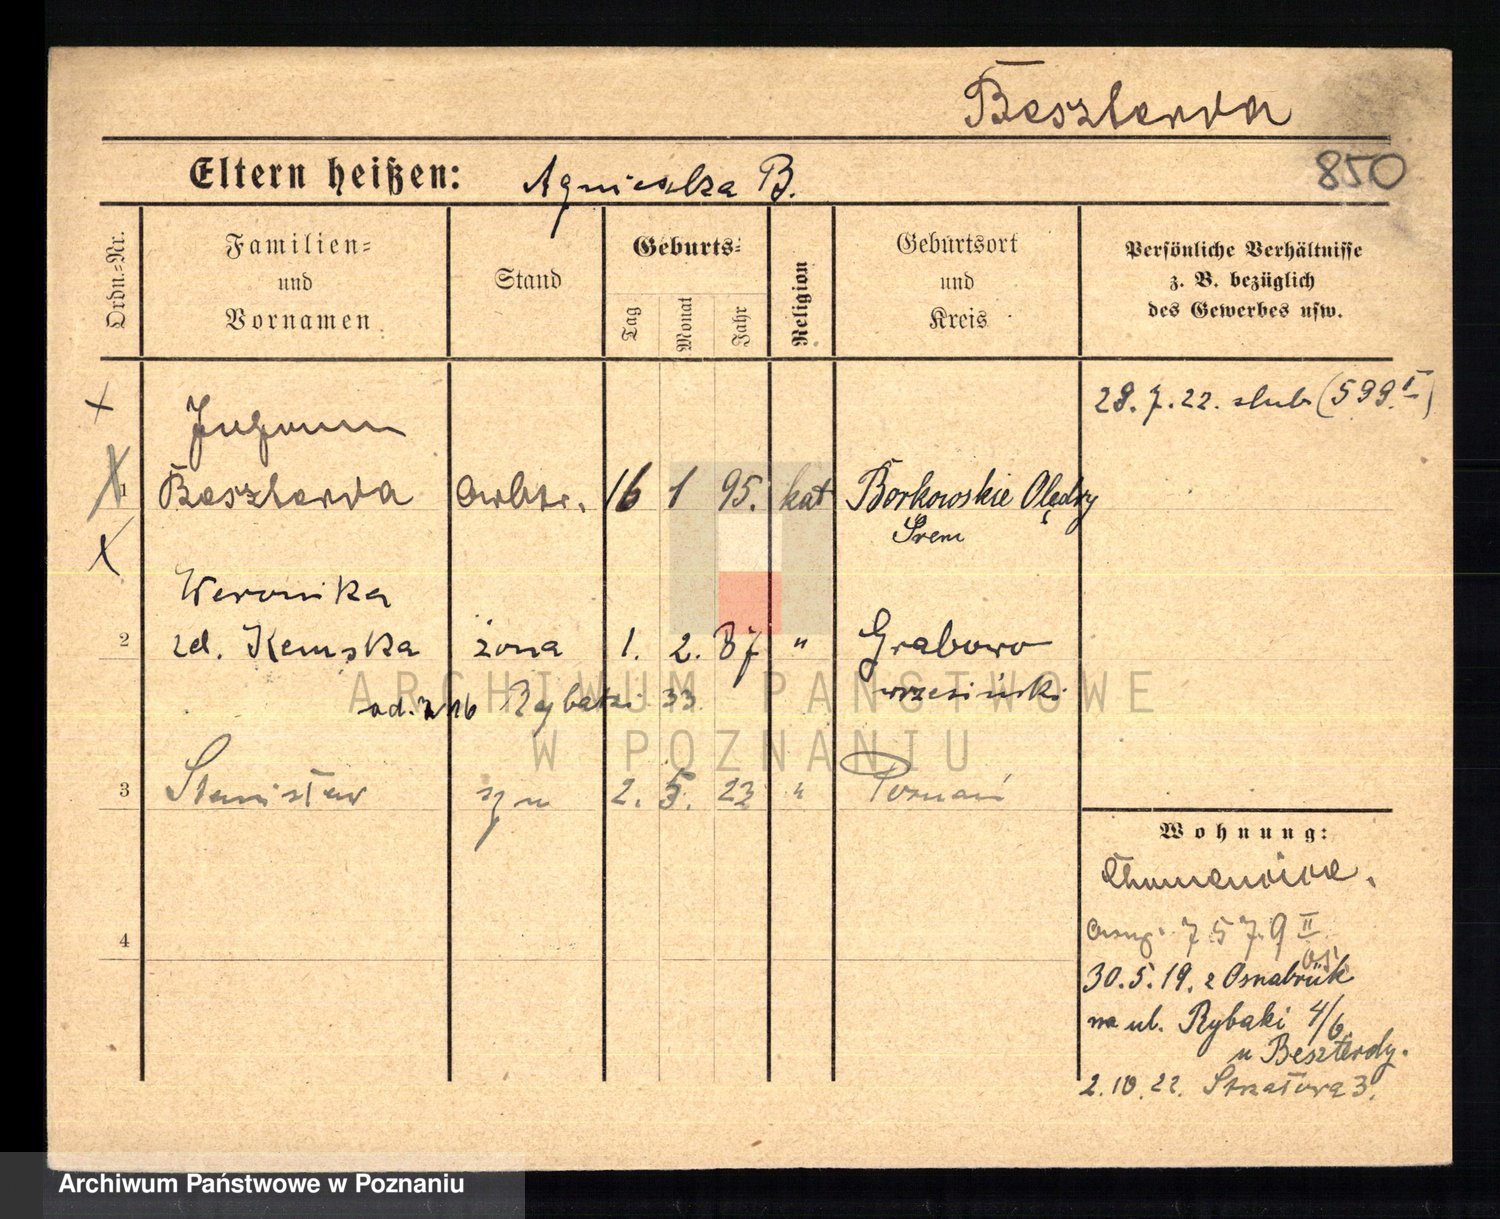 Beszterda
850
Eltern heißen: Agnieszka B.
Ordn.-Nr.
Familien-
und
Vornamen
Stand
Geburts-
Tag
Monat
Jahr
Religion
Geburtsort
und
Kreis
Persönliche Verhältnisse
z. B. bezüglich
des Gewerbes usw.
28.7.22. slub (599 II)
1 Beszterda 16 1 95. kat Borkowskie Olędry
Śrem
Weronika
2 zd. Kemska żona 1. 2. 87 " Grabowo
wrzesiński
Rybaki 33
3 Stanisław syn 2. 5. 22 " Poznań
4
Wohnung:
7579 II
30.5.19. z Osnabrük
na ul. Rybaki 4/6
u Beszterdy.
2.10.22. 3.
ARCHIWUM PAŃSTWOWE
W POZNANIU
Archiwum Państwowe w Poznaniu